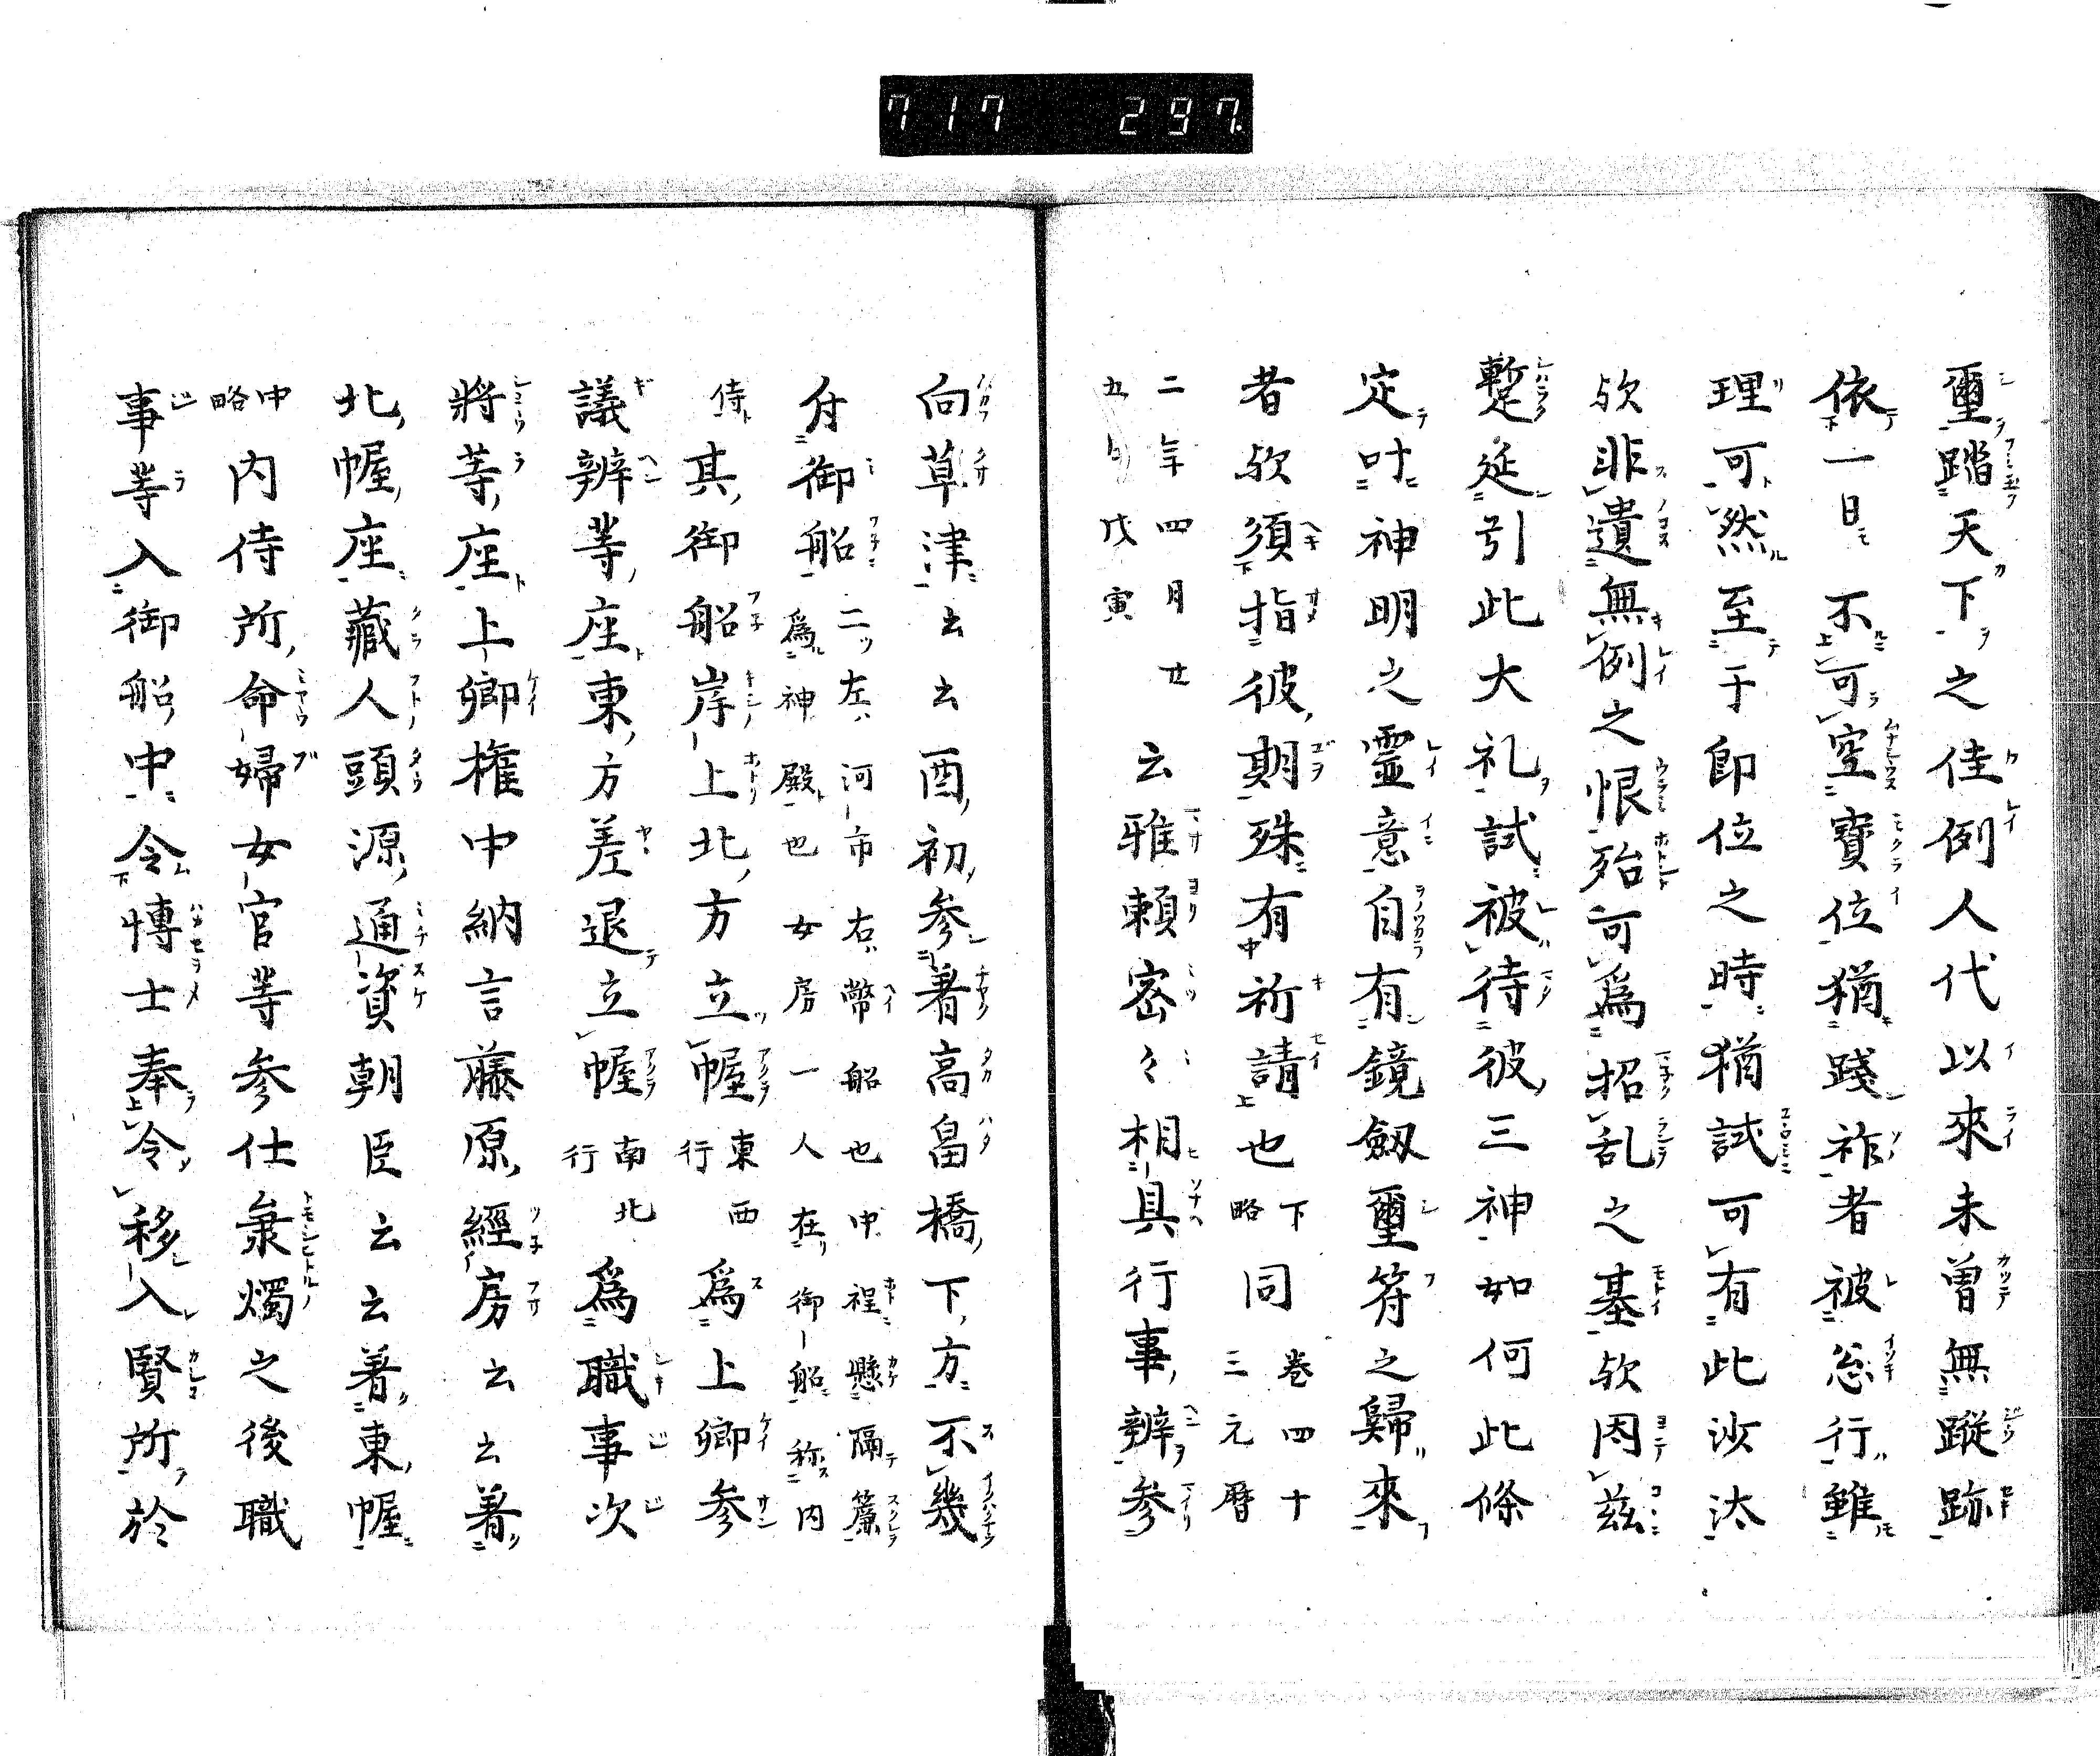 717 297.
璽踏天下之佳例人代以來未曾無蹤跡
依一日不可空寶位猶踐祚者被忩行雖
理可然至于即位之時猶試可有此沙汰
欤非遺無例之恨殆可為招乱之基欤因茲
暫延引此大礼試被待彼三神如何此條
定叶神明之霊意自有鏡劔璽符之歸來
者欤須指彼期殊有祈請也下略同卷四十三元暦
二年四月廿五日戊寅云雅頼密々相具行事辨参
向草津云云酉初参著高畠橋下方不幾
付御船二左河市右幣船也中程懸隔簾為神殿也女房一人在御船称内
侍其御船岸上北方立幄東西行為上卿参
議辨等座東方差退立幄南北行為職事次
將等座上卿権中納言藤原經房云云著
北幄座藏人頭源通資朝臣云云著東幄
中略内侍所命婦女官等参仕秉燭之後職
事等入御船中令博士奉令移入賢所於